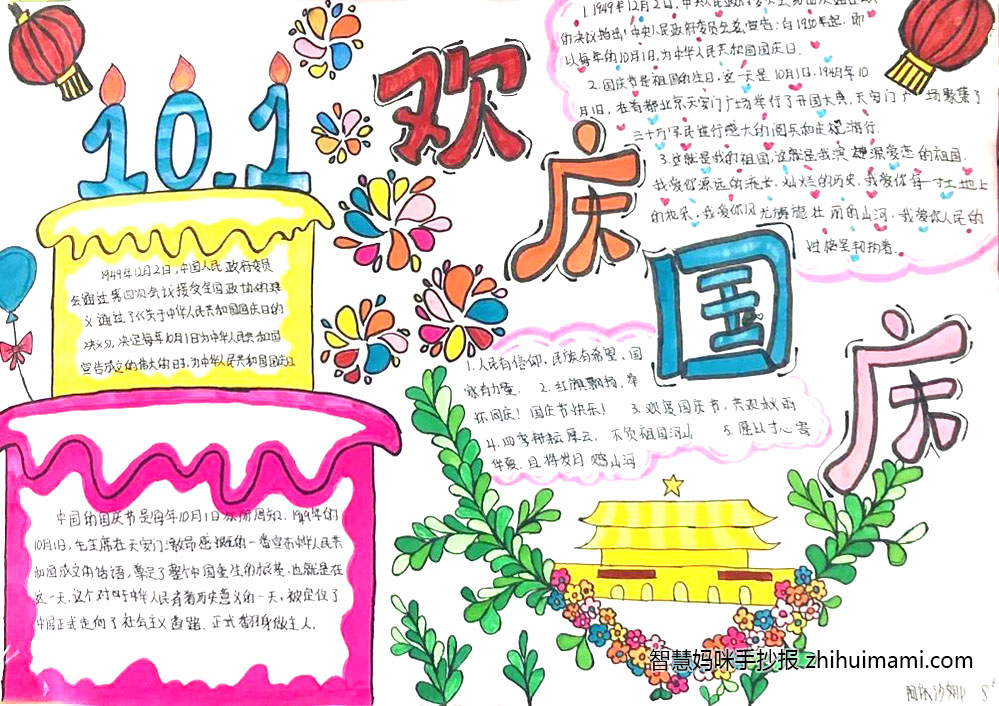 欢庆国庆
10.1
1.1949年12月2日,中
的决议指出:中央人民政府委员会宣告:自1950年起,即
以每年的10月1日,为中华人民共和国国庆日.
2.国庆节是祖国的生日,这一天是10月1日,1949年10
月1日,在首都北京天安门广场举行了开国大典,天安门广场聚集了
三十万军民进行盛大的阅兵和庆祝游行.
3.这就是我的祖国,这就是我深深爱恋的祖国.
我爱你源远的流长,灿烂的历史,我爱你每一寸土地上
的花朵,我爱你风光旖旎壮丽的山河,我爱你人民的
性格坚韧执着.
1949年12月2日,中国人民政府委员
会通过第四次会议接受全国政协的建
议通过了《关于中华人民共和国国庆日的
决议》,决定每年10月1日为中华人民共和国
宣告成立的伟大的日子,为中华人民共和国国庆日
1.人民有信仰,民族有希望,国
家有力量. 2.红旗飘扬,举
杯同庆!国庆节快乐! 3.欢度国庆节,共观秋雨
4.四季耕耘屏云,不负祖国河山 5.愿以寸心寄
华夏,且将岁月赠山河
中国的国庆节是每年10月1日众所周知,1949年的
10月1日,毛主席在天安门激昂感慨的一番宣布中华人民共
和国成立的话语,奠定了整个中国重生的根基.也就是在
这一天,这个对中华人民有着历史意义的一天,被定位了
中国正式走向了社会主义道路.正式翻身做主人.
智慧妈咪手抄报 zhihuimami.com